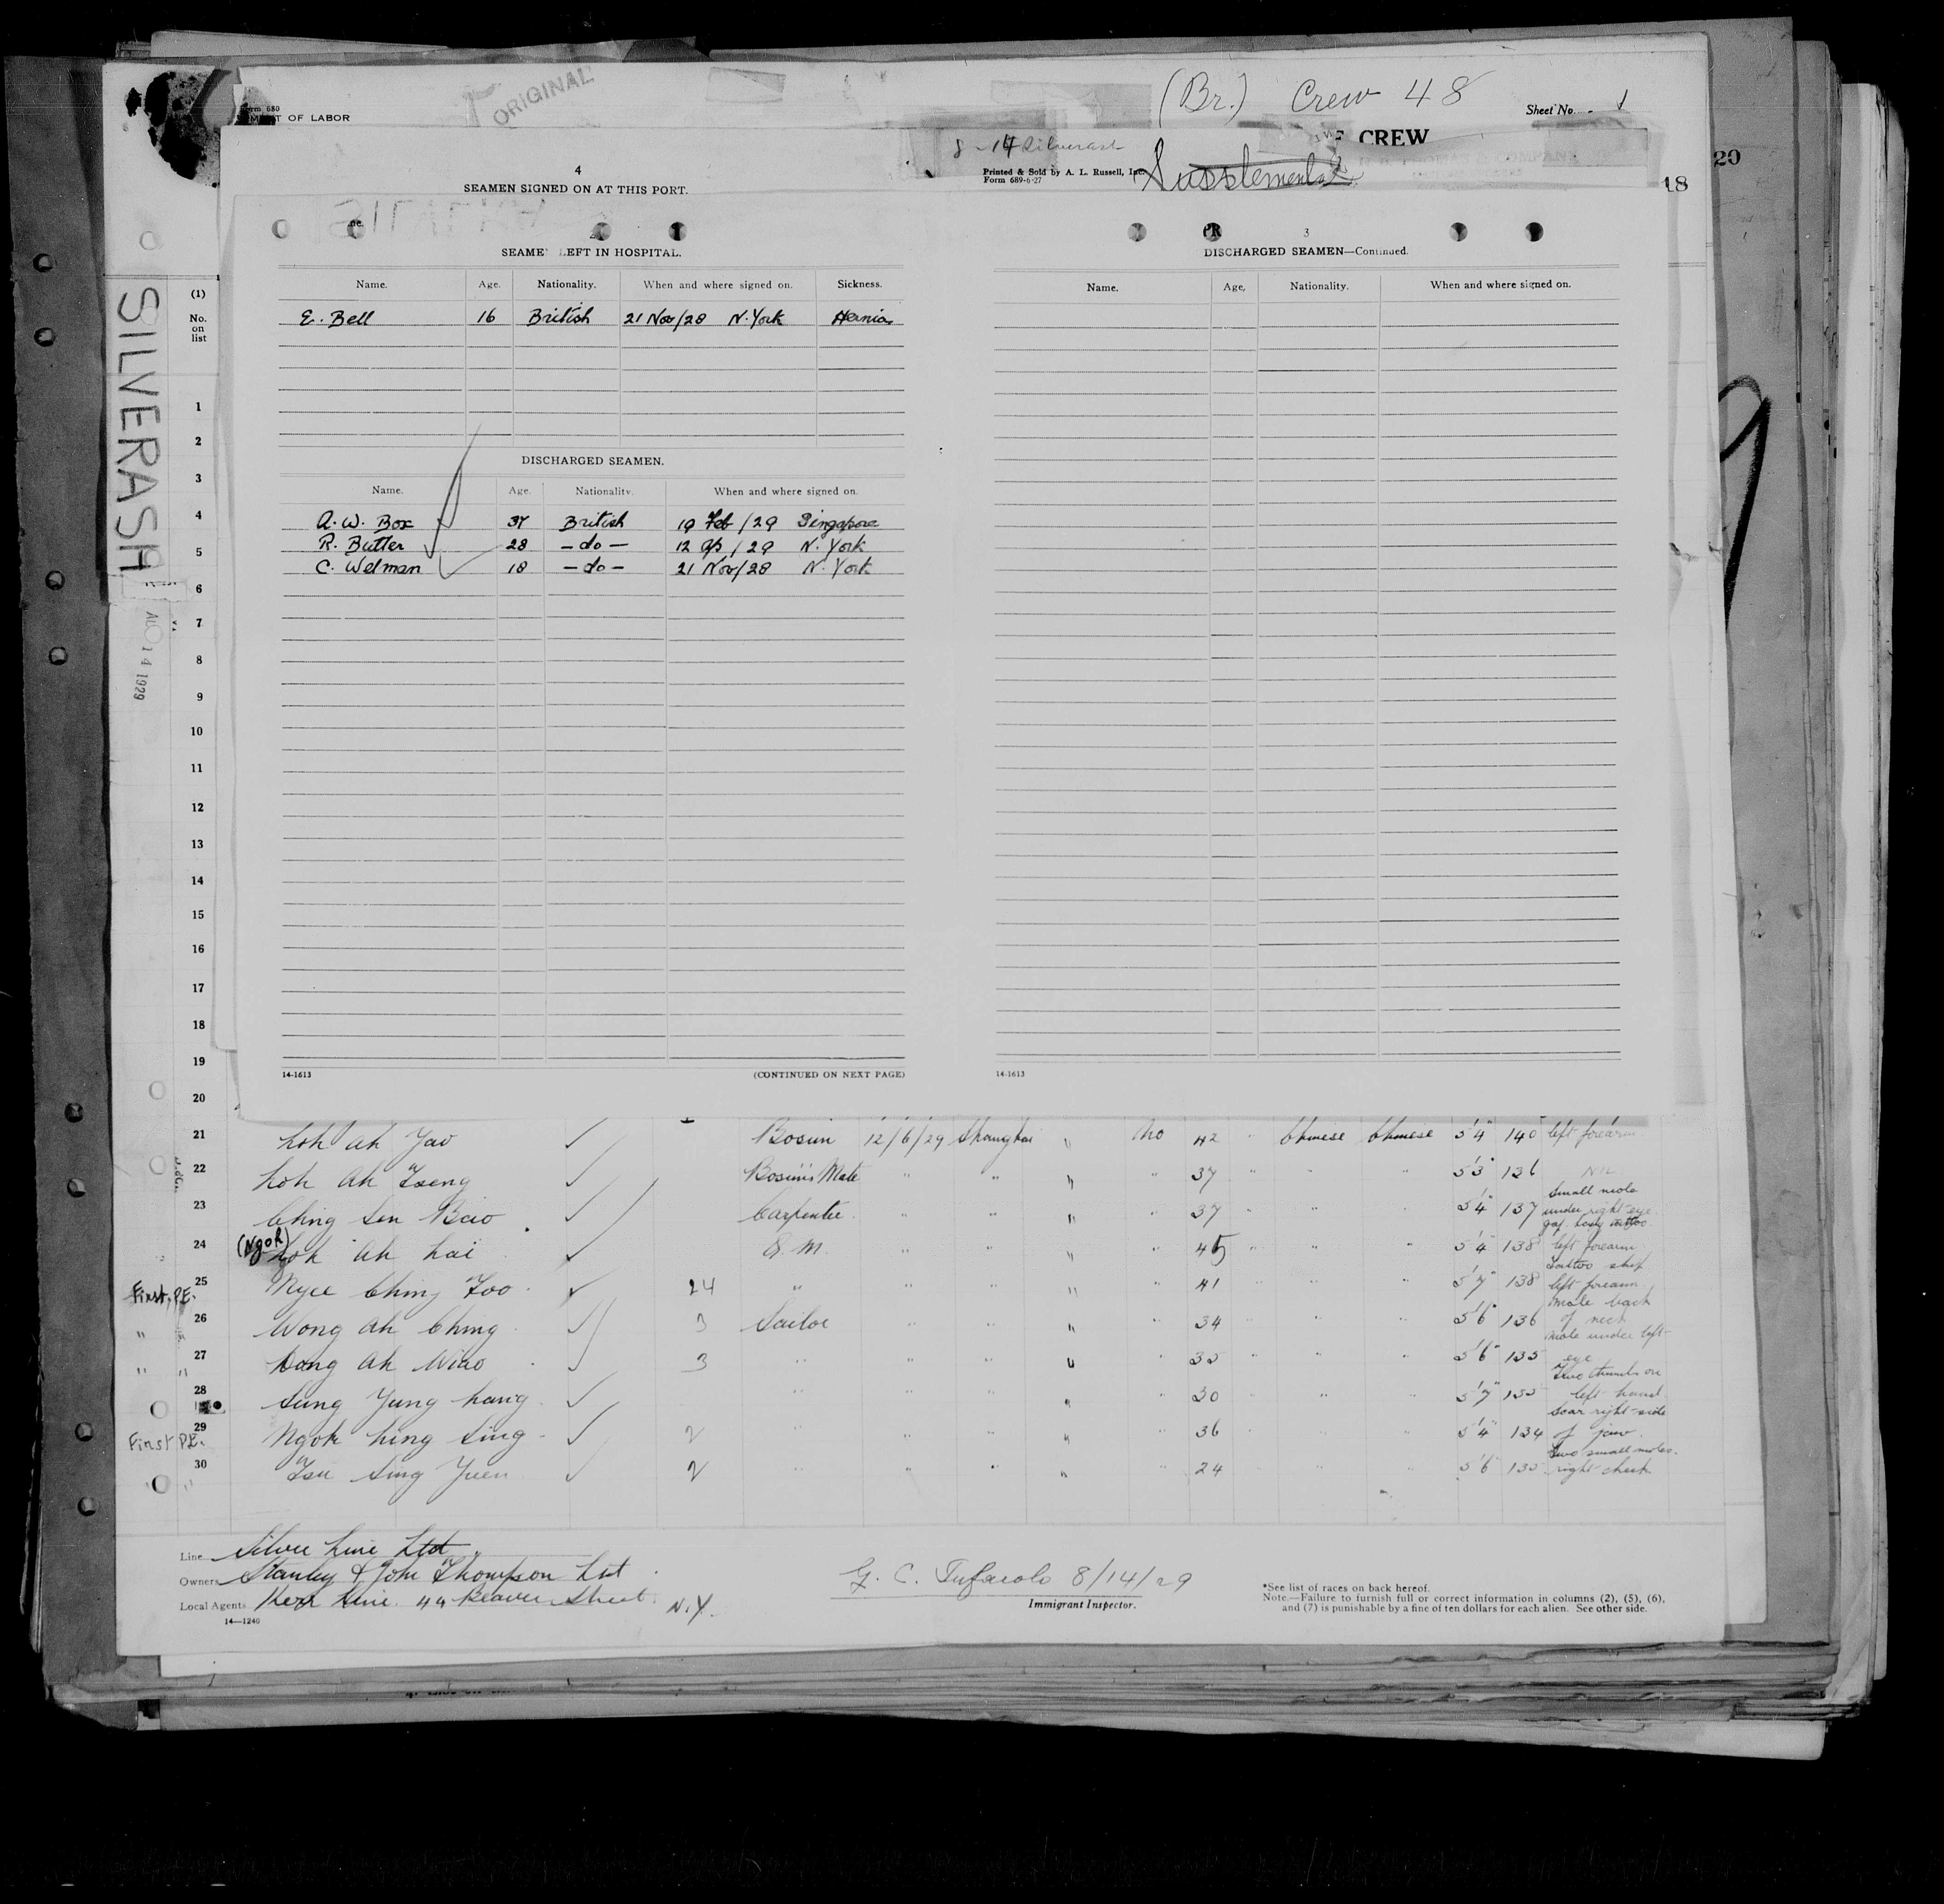 Form 680
OF LABOR
ORIGINAL
(Br.) Crew 48
Sheet No. 1
CREW
8-14 Silverash
Printed & Sold by A. L. Russell, Inc.
Form 689-6-27
Supplemental
20
18
4
SEAMEN SIGNED ON AT THIS PORT.
SEAME LEFT IN HOSPITAL.
Name. Age. Nationality. When and where signed on. Sickness.
E. Bell 16 British 21 Nov/28 N. York Hernia
DISCHARGED SEAMEN.
Name. Age. Nationality. When and where signed on.
A. W. Box 37 British 19 Feb/29 Singapore
R. Butler 28 -do- 12 Ap/29 N. York
C. Welman 18 -do- 21 Nov/28 N. York
14-1613 (CONTINUED ON NEXT PAGE)
3
DISCHARGED SEAMEN—Continued.
Name. Age. Nationality. When and where signed on.
14-1613
SILVERASH
AUG 14 1929
(1)
No.
on
list
1
2
3
4
5
6
7
8
9
10
11
12
13
14
15
16
17
18
19
20
21 Loh Ah Yao Bosun 12/6/29 Shanghai " No 42 " Chinese Chinese 5'4" 140 left forearm
22 Loh Ah Tseng Bosun's Mate " " " " 37 " " " 5'3" 136 NIL
23 Ching Sen Bao Carpenter " " " " 37 " " " 5'4" 137 Small mole under right eye
24 (Ngoh) Loh Ah Lai Q.M. " " " " 45 " " " 5'4" 138 left forearm
First P.E. 25 Myee Ching Foo 24 " " " " " 41 " " " 5'7" 138 Tattoo ship left forearm
" " 26 Wong Ah Ching 3 Sailor " " " " 34 " " " 5'6" 136 Mole back of neck
" " 27 Ah Miao 3 " " " " " 35 " " " 5'6" 135 Mole under left eye
28 Sung Yung Kang " " " " " 30 " " " 5'7" 135 Two thumbs on left hand
First P.E. 29 Ngok Ling Sing 2 " " " " " 36 " " " 5'4" 134 Scar right side of jaw
" 30 Tsu Sing Yuen 2 " " " " " 24 " " " 5'6" 135 Two small moles right chest
Line Silver Line Ltd.
Owners Stanley & John Thompson Ltd
Local Agents Kerr Line. 44 Beaver Street. N.Y.
14—1240
G. C. Tufarolo 8/14/29
Immigrant Inspector.
*See list of races on back hereof.
Note.—Failure to furnish full or correct information in columns (2), (5), (6),
and (7) is punishable by a fine of ten dollars for each alien. See other side.